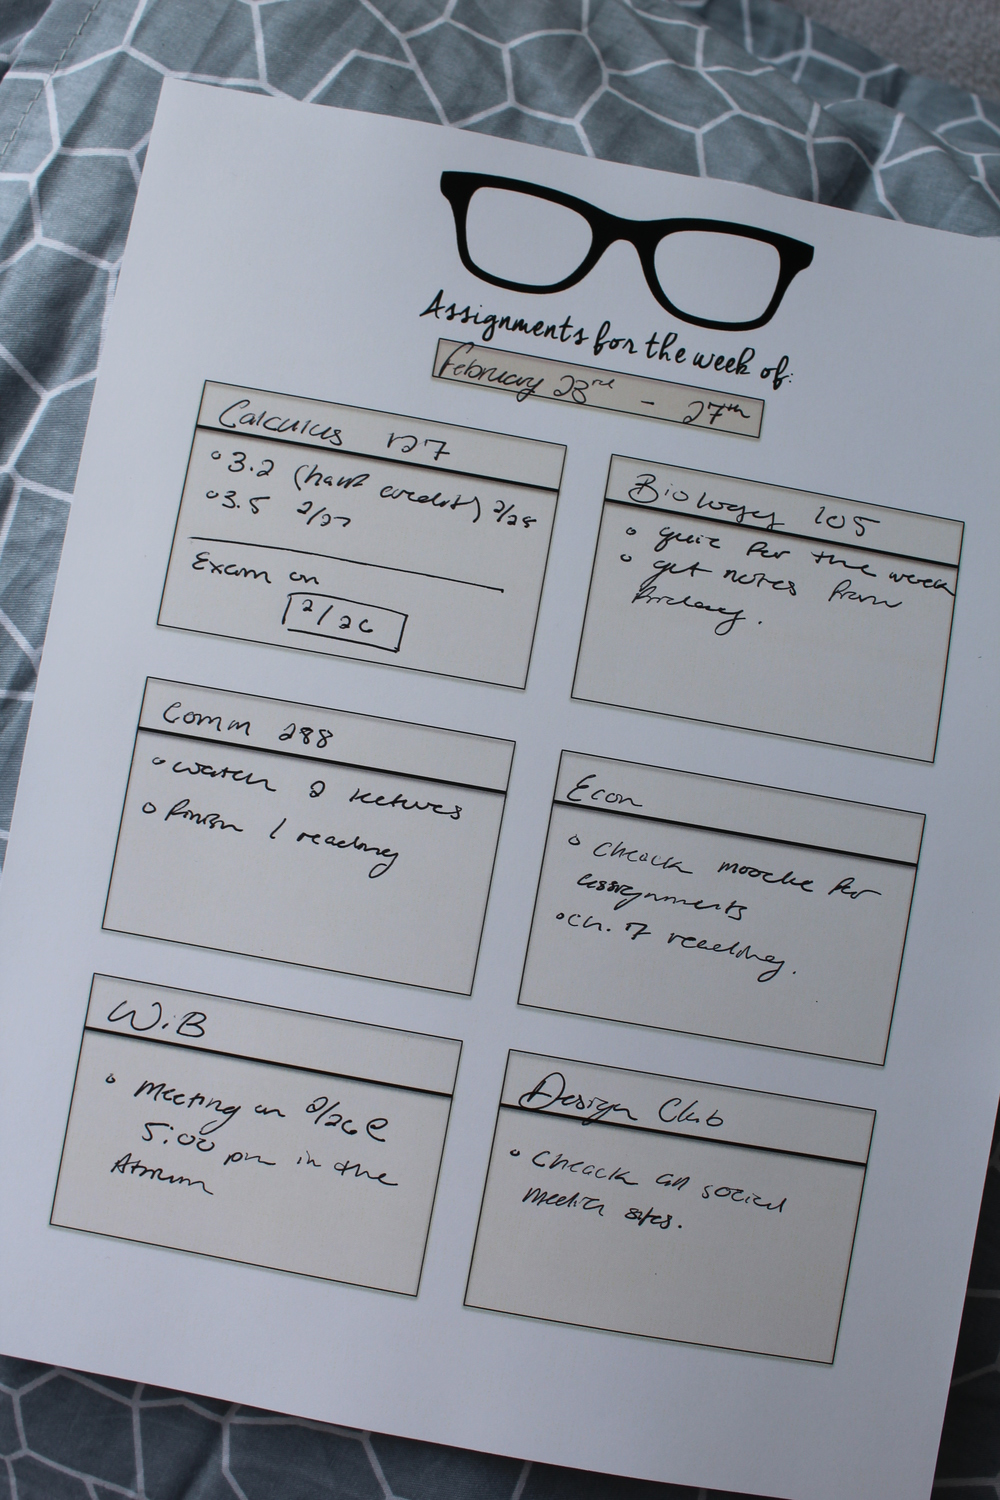 Assignments for the week of:
February 23rd - 27th
Calculus 127
3.2 (half credit) 2/25
3.5 2/27
Exam on
2/26
Biology 105
quiz for the week
get notes from
Friday.
Comm 288
watch 2 lectures
finish 1 reading
Econ
cheack moodle for
assignments
ch. 7 reading.
W.i.B
meeting on 2/26 @
5:00 pm in the
Atrium
Design Club
cheack all social
media sites.